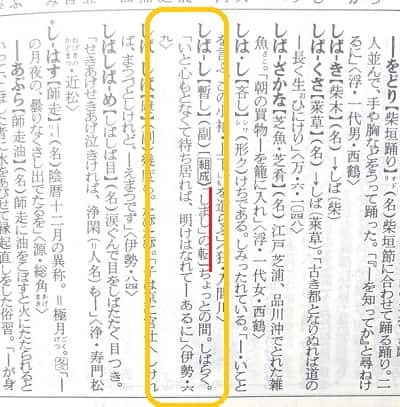 ―をどり【柴垣踊】(名)柴垣節に合わせて踊る踊り。二
人並んで、手や胸などをうって踊った。「―を知ってか』と尋ねけ
るに」〈浮・一代男・西鶴〉
しば-き【柴木】(名)=しば(柴)
しば-くさ【萊草】(名)=しば(萊草)。「古き都となりぬれば道の
―長く生ひにけり」〈万・六・一〇四〉
しば-ざかな【芝魚・芝肴】(名)江戸芝浦、品川沖でとれた雑
魚。「朝の買物―を籠に入れ」〈浮・一代女・西鶴〉
しは・し【吝し】(形ク)けちである。しみったれている。「―いこと
しば-し【暫し】(副)[組成]「しまし」の転]ちょっとの間。しばらく。
「いと心もとなくて待ち居れば、明けはなれて―あるに」〈伊勢・六
九〉
ば、まうづとしけれど、―えまうでず」〈伊勢・八四〉
しばしば-め【しばしば目】(名)涙ぐんで目をしばたたく目つき。
「せきあげせきあげ泣きければ、浄閑(=人名)も―」〈浄・寿門松
・近松〉
し-はす【師走】(名)陰暦十二月の異称。=極月。图「―
の月夜の、曇りなくさし出でたるを」〈源・総角〉
―あぶら【師走油】(名)師走に油をこぼすと火にたたられると
いって、こぼした者に水をあびせて縁起直しをした俗習。「―が身